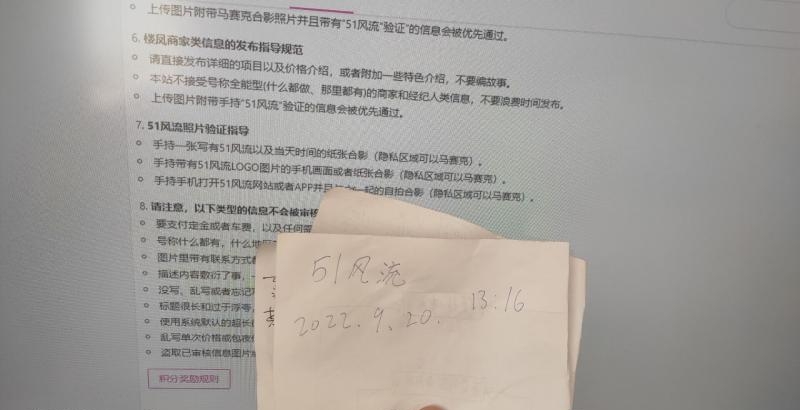 上传图片附带马赛克合影照片并且带有"51风流"验证"的信息会被优先通过。
6. 楼凤商家类信息的发布指导规范
请直接发布详细的项目以及价格介绍，或者附加一些特色介绍，不要编故事。
本站不接受号称全能型(什么都做、那里都有)的商家和经纪人类信息，不要浪费时间发布。
上传图片附带手持"51风流"验证的信息会被优先通过。
7. 51风流照片验证指导
手持一张写有51风流以及当天时间的纸张合影（隐私区域可以马赛克）。
手持带有51风流LOGO图片的手机画面或者纸张合影（隐私区域可以马赛克）。
手持手机打开51风流网站或者APP并且 一起的自拍合影（隐私区域可以马赛克）。
8. 请注意，以下类型的信息不会被审核
要支付定金或者车费，以及任何需
号称什么都有，什么地
图片里带有联系方式
描述内容敷衍了事，
没写、乱写或者忘记
标题很长和过于浮夸
使用系统默认的超长
乱写单次价格或包夜
盗取已审核信息图片
积分奖励规则
51风流
2022.9.20. 13:16